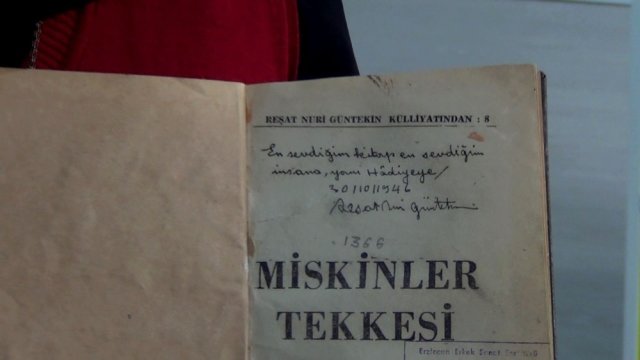 REŞAT NURİ GÜNTEKİN KÜLLİYATINDAN : 8
En sevdiğim kitap en sevdiğim
insana, yani Hâdiyeye
30/10/1946
Reşat Nuri Güntekin
1366
MİSKİNLER
TEKKESİ
Erzincan Erkek Sanat